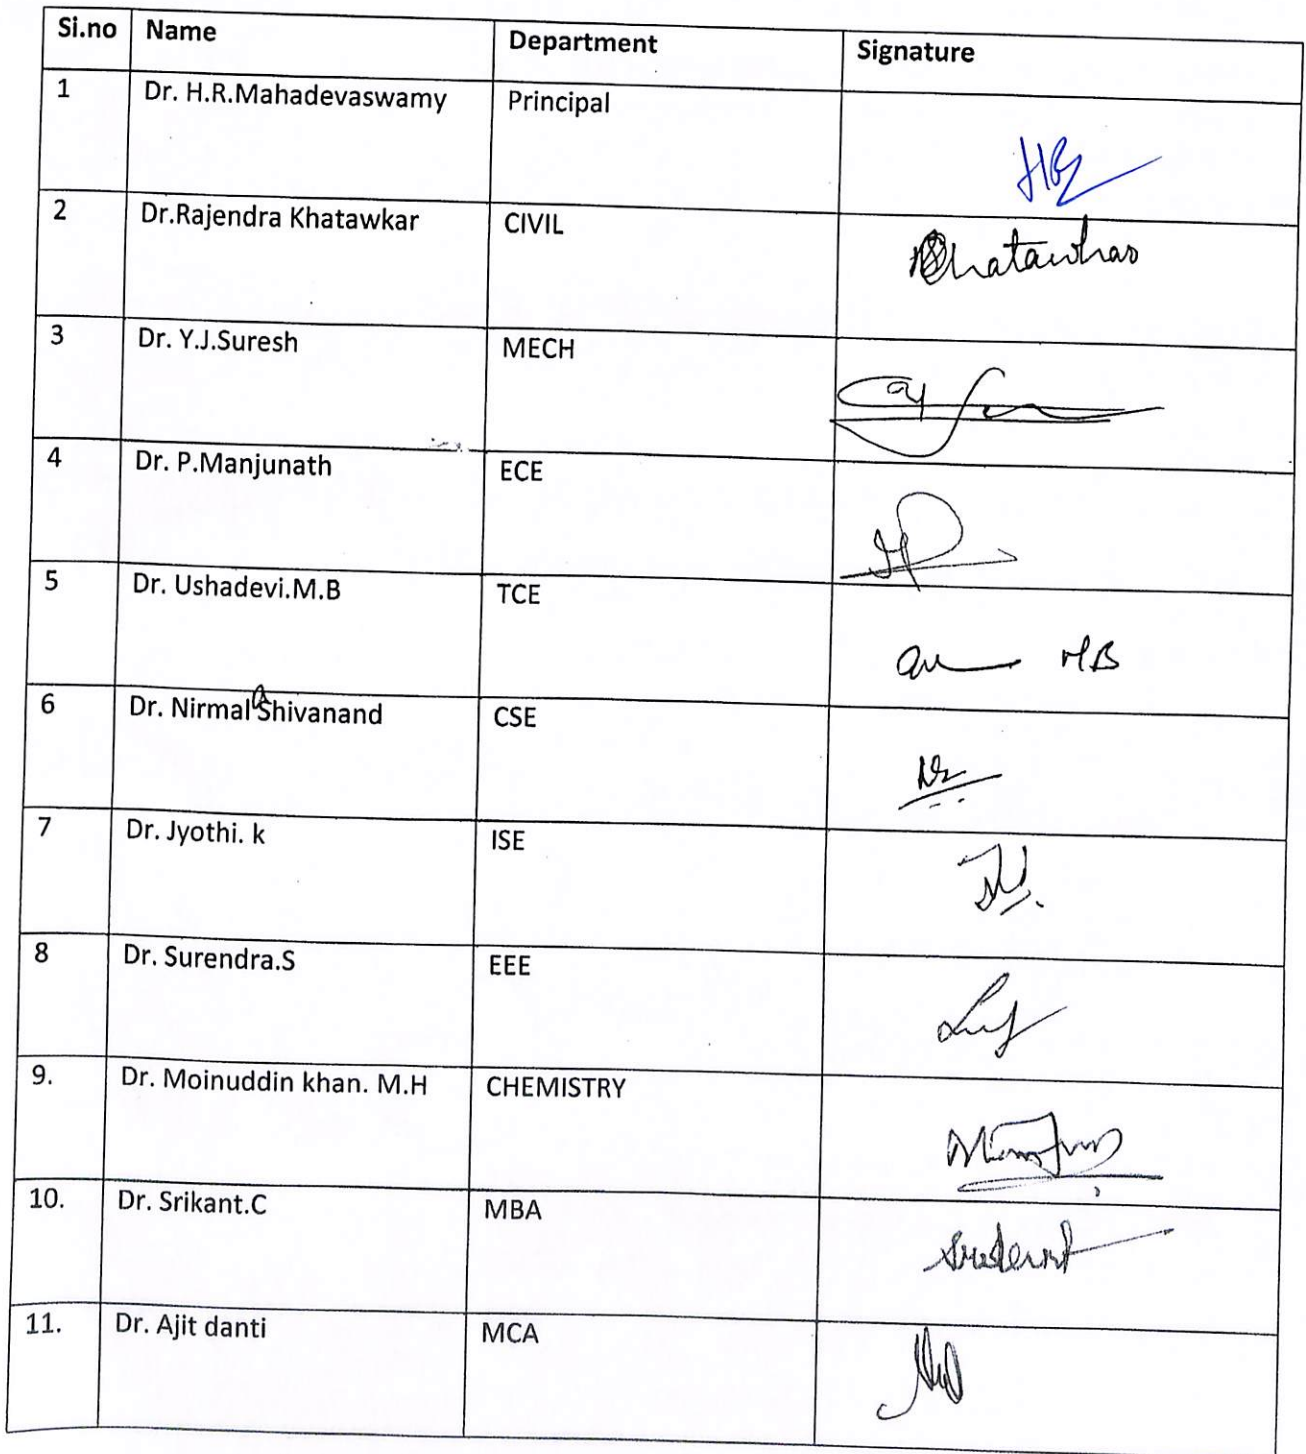 Si.no Name Department Signature
1 Dr. H.R.Mahadevaswamy Principal
2 Dr.Rajendra Khatawkar CIVIL
3 Dr. Y.J.Suresh MECH
4 Dr. P.Manjunath ECE
5 Dr. Ushadevi.M.B TCE
MB
6 Dr. Nirmala Shivanand CSE
7 Dr. Jyothi. k ISE
8 Dr. Surendra.S EEE
9. Dr. Moinuddin khan. M.H CHEMISTRY
10. Dr. Srikant.C MBA
11. Dr. Ajit danti MCA